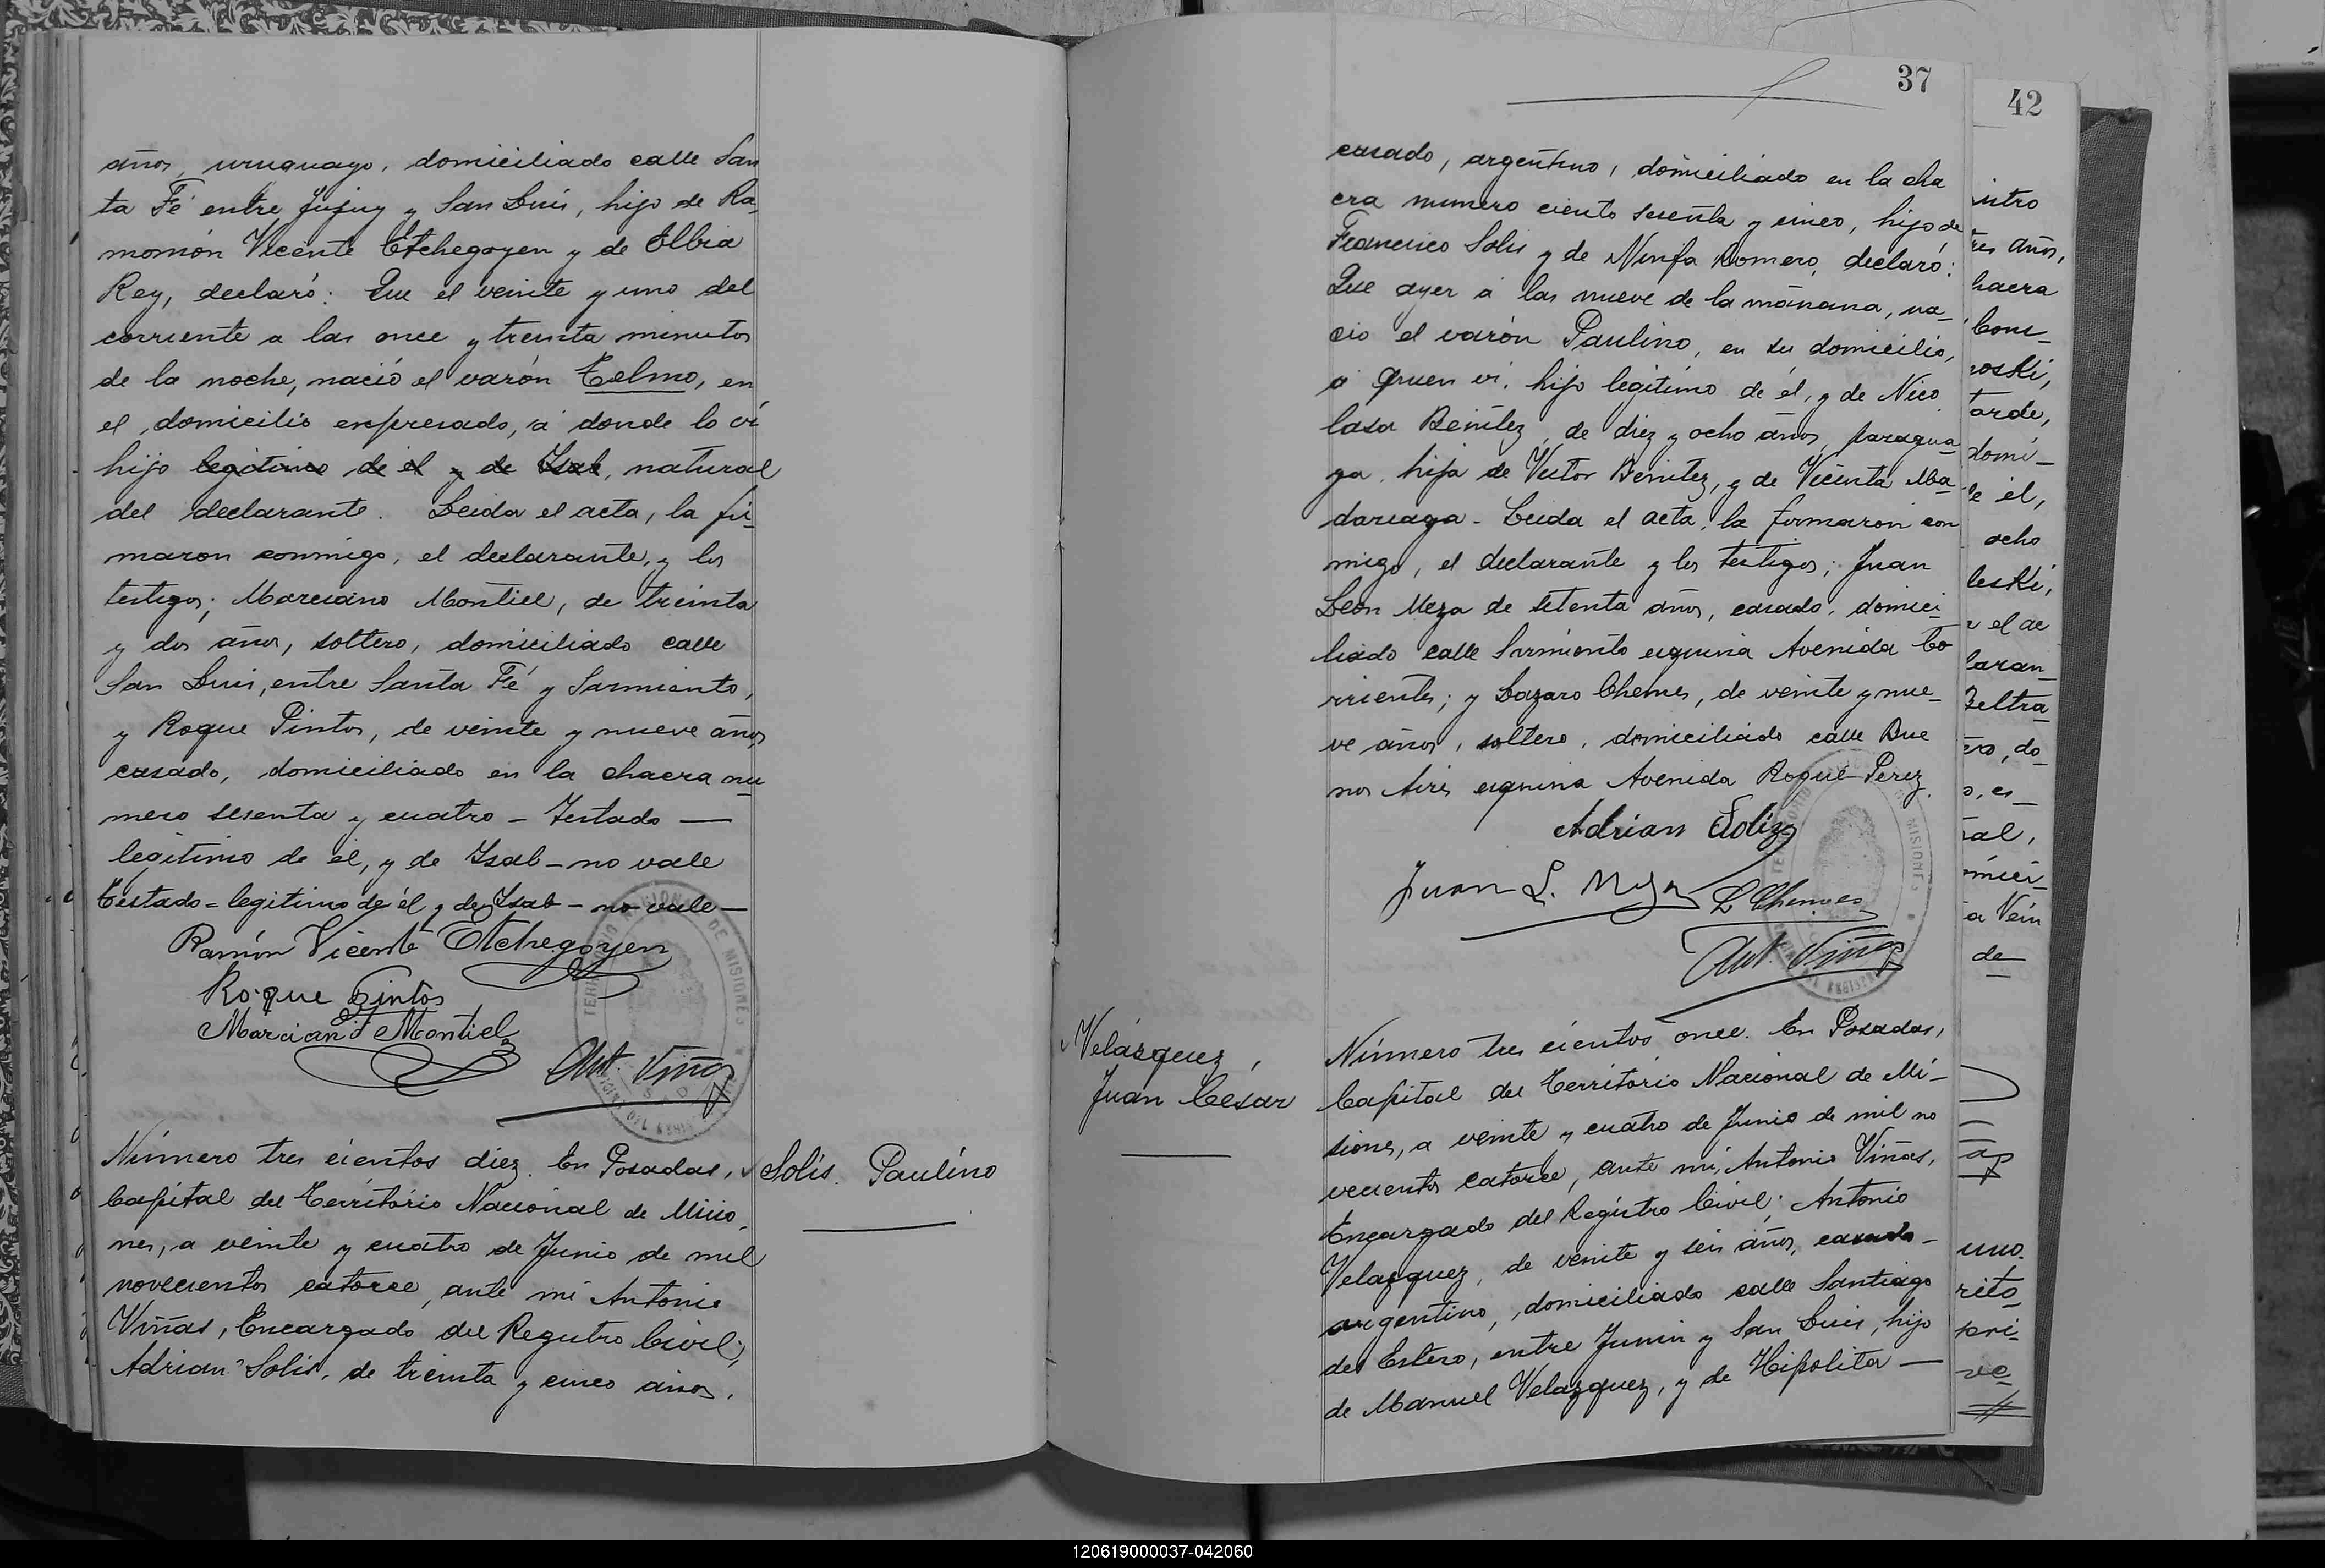 años, uruguayo, domiciliado calle San
ta Fé entre Jujuy y San Luis, hijo de Ra
momón Vicente Etchegoyen y de Elbia
Rey, declaró: Que el veinte y uno del
corriente a las once y treinta minutos
de la noche, nació el varón Telmo, en
el domicilio expresado, á donde lo ví
hijo legitimo de el y de Isab, natural
del declarante. Leida el acta, la fir-
maron conmigo, el declarante, y los
testigos; Marciano Montiel, de treinta
y dos años, soltero, domiciliado calle
San Luis, entre Santa Fé y Sarmiento,
y Roque Pintos, de veinte y nueve años,
casado, domiciliado en la chacra nu
mero sesenta y cuatro - Testado —
legitimo de él, y de Isab - no vale
Testado = legitimo de él y de Isab - no vale —
Ramón Vicente Etchegoyen
Roque Pintos
Marciano Montiel
Ant. Viñas
Número tres cientos diez. En Posadas,
Capital del Territorio Nacional de Misio
nes, a veinte y cuatro de Junio de mil
novecientos catorce, ante mi Antonio
Viñas, Encargado del Registro Civil;
Adrian Solis, de treinta y cinco años,
Solis. Paulino
37
casado, argentino, domiciliado en la cha
cra numero ciento sesenta y cinco, hijo de
Francisco Solis y de Ninfa Romero, declaró:
Que ayer á las nueve de la mañana, na-
cio el varón Paulino, en su domicilio,
á quien ví, hijo legitimo de él, y de Nico
lasa Benitez, de diez y ocho años, paragua
ya, hija de Victor Benitez, y de Vicenta Ma-
dariaga - Leida el acta, la firmaron con
migo, el declarante y los testigos; Juan
León Meza de setenta años, casado, domici-
liado calle Sarmiento esquina Avenida Co
rrientes; y Lazaro Chemes, de veinte y nue-
ve años, soltero, domiciliado calle Bue
nos Aires esquina Avenida Roque Perez.
Adrian Soliz
Juan L. Meza
L Chemes
Ant. Viñas
Velásquez,
Juan Cesar
Número tres cientos once. En Posadas,
Capital del Territorio Nacional de Mi-
siones, a veinte y cuatro de Junio de mil no
vecientos catorce, ante mi, Antonio Viñas,
Encargado del Registro Civil; Antonio
Velazquez, de veinte y seis años, casado -
argentino, domiciliado calle Santiago
del Estero, entre Junin y San Luis, hijo
de Manuel Velazquez, y de Hipolita —
42
tres años,
hacra
oski,
tarde,
domi-
de él,
ocho
leski,
laran-
Beltra-
ero, do-
de
uno.
120619000037-042060